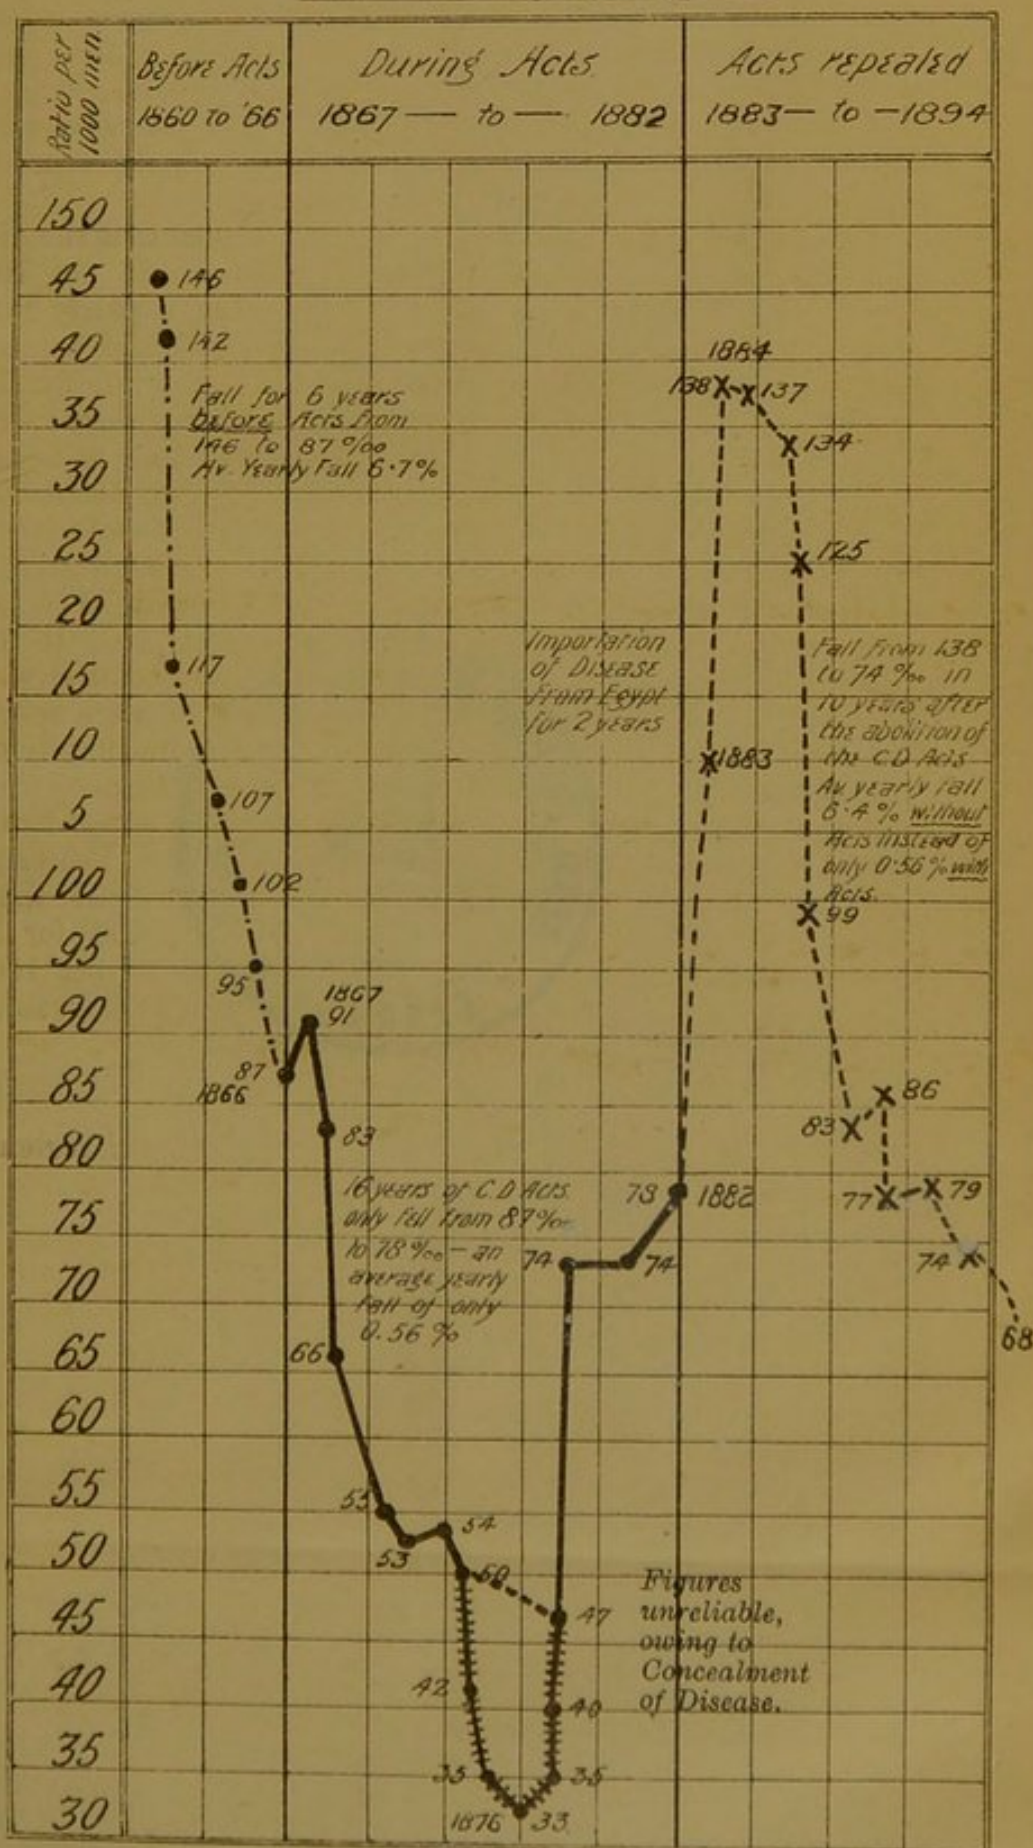 Ratio per
1000 men.
Before Acts
1860 to '66
During Acts
1867 — to — 1882
Acts repealed
1883 — to — 1894
150
45
40
35
30
25
20
15
10
5
100
95
90
85
80
75
70
65
60
55
50
45
40
35
30
146
142
Fall for 6 years
before Acts from
146 to 87 ‰
Av. Yearly Fall 6·7%
117
107
102
95
87
1866
1867
91
83
16 years of C.D Acts
only fell from 87‰
to 78 ‰ — an
average yearly
fall of only
0.56 %
66
55
53
54
50
42
35
1876
33
35
40
47
Figures
unreliable,
owing to
Concealment
of Disease.
74
74
78
1882
Importation
of Disease
From Egypt
for 2 years
1883
1884
138
137
134
125
Fall from 138
to 74 ‰ in
10 years after
the abolition of
the C.D Acts
Av. yearly fall
6·4 % without
Acts instead of
only 0·56 % with
Acts.
99
83
86
77
79
74
68